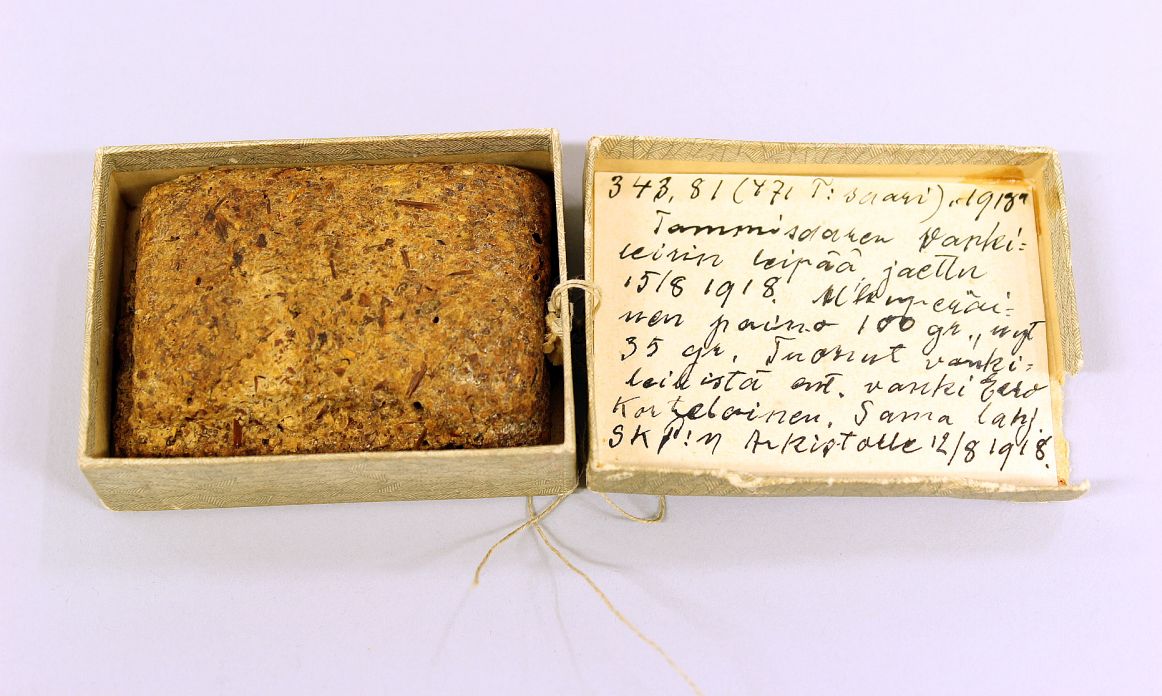 343.81 (471 T:saari) "1918"
Tammisaaren vanki-
leirin leipää, jaettu
15/8 1918. Alkuperäi-
nen paino 100 gr., nyt
35 gr. Tuonut vanki-
leiristä ent. vanki Eero
Kortelainen. Sama lahj.
SKP:n Arkistolle 12/8 1918.